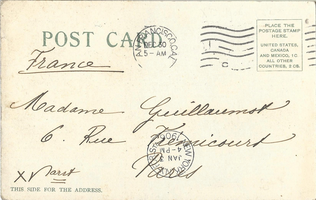 POST CARD.
SAN FRANCISCO, CAL.
DEC 30
5-AM
PLACE THE
POSTAGE STAMP
HERE.
UNITED STATES,
CANADA
AND MEXICO, 1C.
ALL OTHER
COUNTRIES, 2 CS.
France
Madame Guillaumot
6. Rue
Paris
NEW YORK
JAN 3
4-PM
XV Paris
THIS SIDE FOR THE ADDRESS.